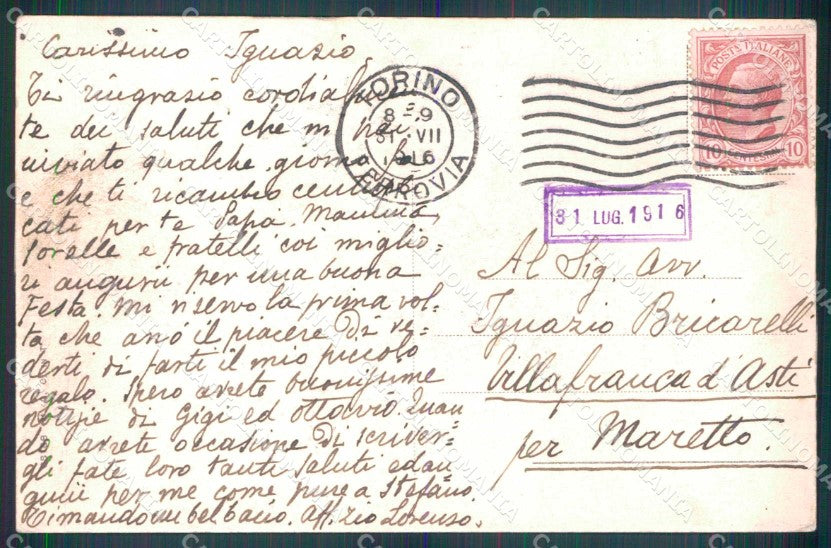 Carissimo Ignazio,
Ti ringrazio cordialmen
te dei saluti che m'hai
inviato qualche giorno fà
e che ti ricambio centupli
cati per te Papa, Mamma,
sorelle e fratelli coi miglio=
ri augurii per una buona
Festa. Mi riservo la prima vol=
ta che avrò il piacere di ve=
derti di farti il mio piccolo
regalo. Spero avrete buonissime
notizie di Gigi ed Ottavio. Quan
do avrete occasione di scriver=
gli fate loro tanti saluti ed au
gurii per me come pure a Stefano.
Ti mando un bel bacio. Aff. Zio Lorenzo.
TORINO
8-9
31 VII
1916
FERROVIA
POSTE ITALIANE
10 CENTESIMI 10
31 LUG. 1916
Al Sig. Avv.
Ignazio Bricarelli
Villafranca d'Asti
per Maretto.
CARTOLINOMANIA